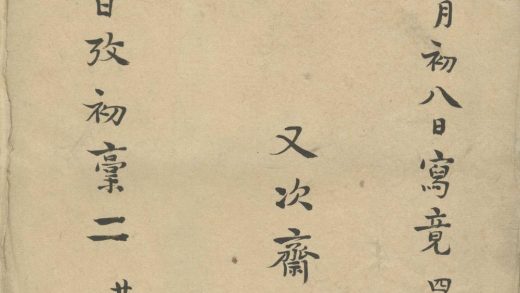 月初八日寫竟
又次齋
日攷初稾二